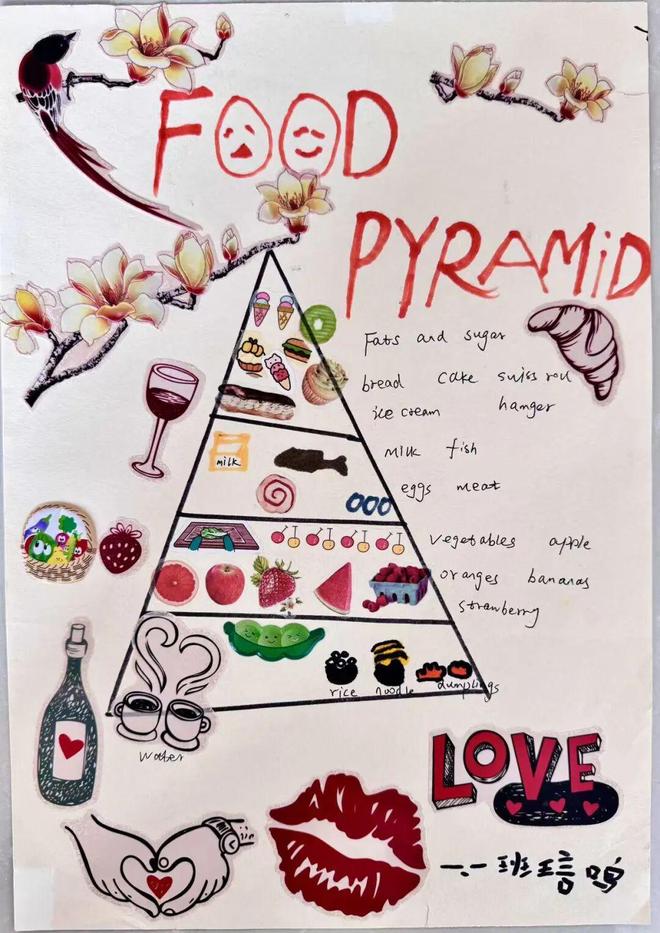 FOOD
PYRAMiD
Fats and sugar
bread cake suiss roll
ice cream hanger
milk fish
milk
eggs meat
vegetables apple
oranges bananas
strawberry
rice noodle dumplings
water
LOVE